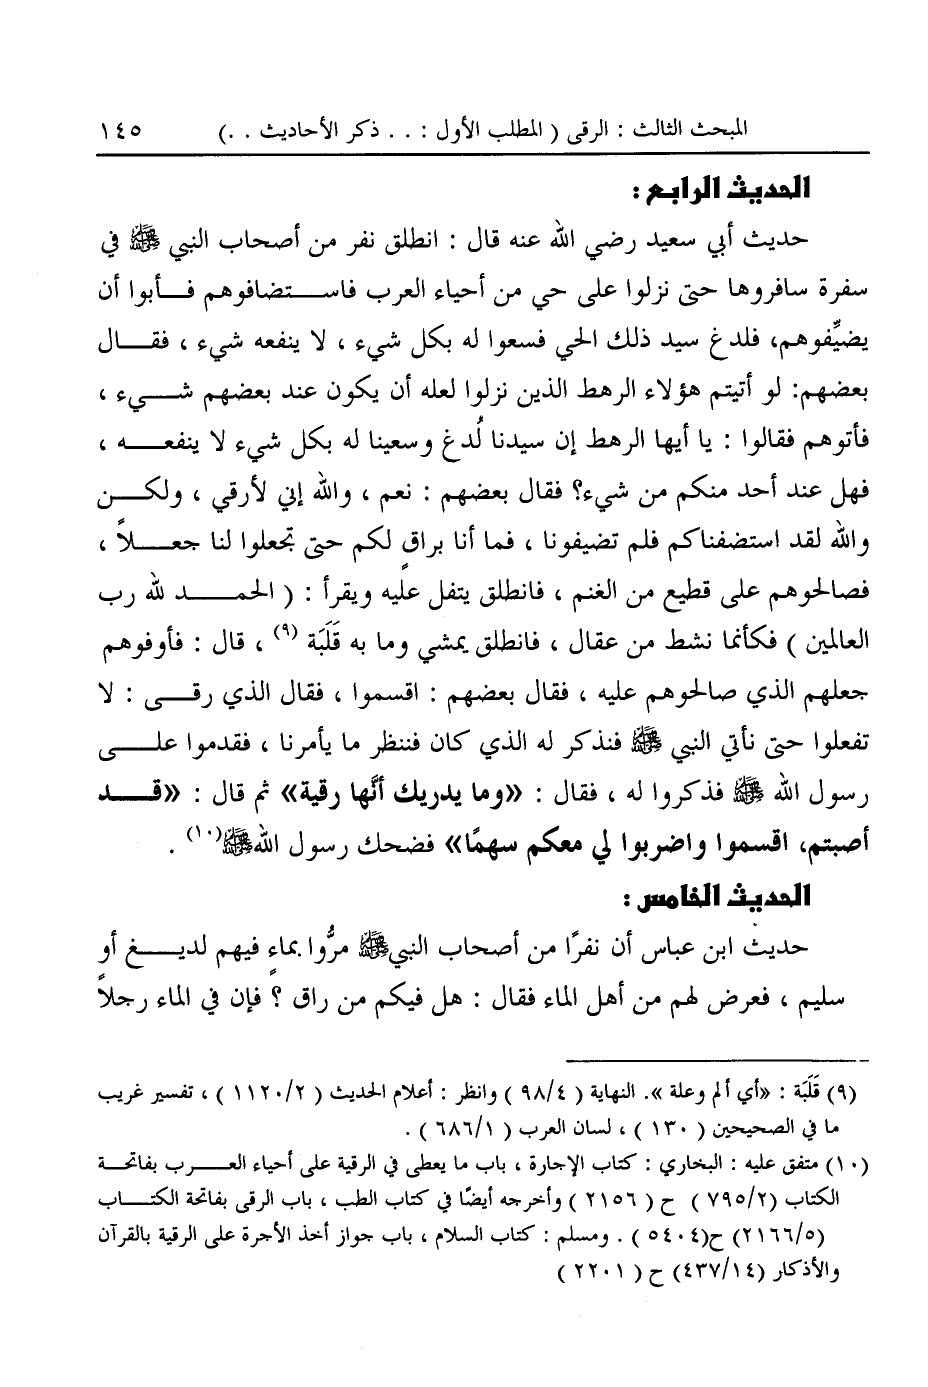 المبحث الثالث : الرقى ( المطلب الأول : . . ذكر الأحاديث . .) ١٤٥
الحديث الرابع :
حديث أبي سعيد رضي الله عنه قال : انطلق نفر من أصحاب النبي ﷺ في
سفرة سافروها حتى نزلوا على حي من أحياء العرب فاستضافوهم فأبوا أن
يضيِّفوهم، فلدغ سيد ذلك الحي فسعوا له بكل شيء ، لا ينفعه شيء ، فقال
بعضهم: لو أتيتم هؤلاء الرهط الذين نزلوا لعله أن يكون عند بعضهم شيء ،
فأتوهم فقالوا : يا أيها الرهط إن سيدنا لُدغ وسعينا له بكل شيء لا ينفعه ،
فهل عند أحد منكم من شيء؟ فقال بعضهم : نعم ، والله إني لأرقي ، ولكن
والله لقد استضفناكم فلم تضيفونا ، فما أنا براقٍ لكم حتى تجعلوا لنا جعلاً ،
فصالحوهم على قطيع من الغنم ، فانطلق يتفل عليه ويقرأ : ( الحمد لله رب
العالمين ) فكأنما نشط من عقال ، فانطلق يمشي وما به قَلَبَة (٩) ، قال : فأوفوهم
جعلهم الذي صالحوهم عليه ، فقال بعضهم : اقسموا ، فقال الذي رقى : لا
تفعلوا حتى نأتي النبي ﷺ فنذكر له الذي كان فننظر ما يأمرنا ، فقدموا على
رسول الله ﷺ فذكروا له ، فقال : «وما يدريك أنَّها رقية» ثم قال : «قد
أصبتم، اقسموا واضربوا لي معكم سهمًا» فضحك رسول الله ﷺ(١٠) .
الحديث الخامس :
حديث ابن عباس أن نفرًا من أصحاب النبي ﷺ مرُّوا بماءٍ فيهم لديغ أو
سليم ، فعرض لهم من أهل الماء فقال : هل فيكم من راق ؟ فإن في الماء رجلاً
(٩) قَلَبَة : «أي ألم وعلة ». النهاية ( ٩٨/٤ ) وانظر : أعلام الحديث ( ١١٢٠/٢ ) ، تفسير غريب
ما في الصحيحين ( ١٣٠ ) ، لسان العرب ( ٦٨٦/١ ) .
(١٠) متفق عليه : البخاري : كتاب الإجارة ، باب ما يعطى في الرقية على أحياء العرب بفاتحة
الكتاب (٧٩٥/٢ ) ح ( ٢١٥٦ ) وأخرجه أيضًا في كتاب الطب ، باب الرقى بفاتحة الكتاب
(٢١٦٦/٥) ح(٥٤٠٤ ) . ومسلم : كتاب السلام ، باب جواز أخذ الأجرة على الرقية بالقرآن
والأذكار (٤٣٧/١٤) ح ( ٢٢٠١ )